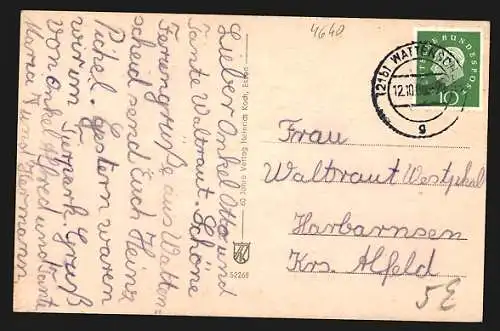 4640
Lieber Onkel Otto und
Tante Waltraut. Schöne
Feriengrüße aus Watten-
scheid send Euch Heinz
Pichel. Gestern waren
wir im Tierpark. Gruß
von Onkel Alfred und Tante
Maria und Hermann
60 Jahre Verlag Heinrich Koch, Essen
52268
DEUTSCHE BUNDESPOST
10
(21b) WATTENSCH
12.10.
g
Frau
Waltraut Westphal
Harbarnsen
Krs. Alfeld
5E